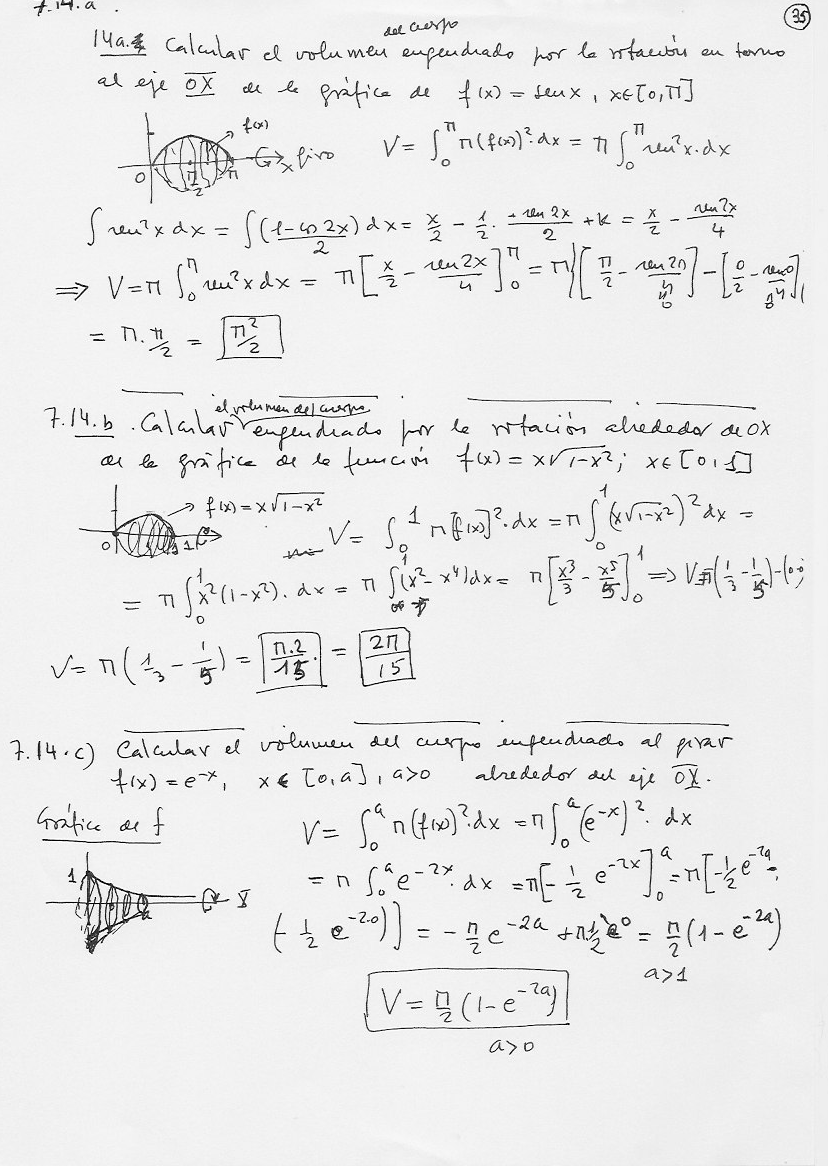 7.14.a .
35
del cuerpo
14a. Calcular el volumen engendrado por la rotación en torno
al eje OX de la gráfica de f(x) = sen x , x∈[0,π]
f(x)
0 π/2 π x giro
V = ∫₀^π π(f(x))²·dx = π ∫₀^π sen²x·dx
∫ sen²x dx = ∫ (1-cos 2x)/2 dx = x/2 - 1/2 · + sen 2x/2 + k = x/2 - sen2x/4
⇒ V = π ∫₀^π sen²x dx = π [x/2 - sen2x/4]₀^π = π{[π/2 - sen2π/4] - [0/2 - sen0/4]}
= π·π/2 = π²/2
el volumen del cuerpo
7.14.b . Calcular engendrado por la rotación alrededor de OX
de la gráfica de la función f(x) = x√(1-x²); x∈[0,1]
→ f(x) = x√(1-x²)
0 1
V = ∫₀¹ π[f(x)]²·dx = π∫₀¹ (x√(1-x²))² dx =
= π∫₀¹ x²(1-x²)·dx = π ∫₀¹ (x²-x⁴)dx = π[x³/3 - x⁵/5]₀¹ ⇒ V=π(1/3 - 1/5)-(0-0)
V = π(1/3 - 1/5) = π·2/15 = 2π/15
7.14.c) Calcular el volumen del cuerpo engendrado al girar
f(x) = e^-x, x∈[0,a], a>0 alrededor del eje OX.
Gráfica de f
1 a X
V = ∫₀^a π(f(x))²·dx = π∫₀^a (e^-x)²· dx
= π ∫₀^a e^-2x·dx = π[-1/2 e^-2x]₀^a = π[-1/2 e^-2a -
(-1/2 e^-2·0)] = -π/2 e^-2a + π·1/2 e⁰ = π/2 (1-e^-2a)
a>1
V = π/2 (1-e^-2a)
a>0